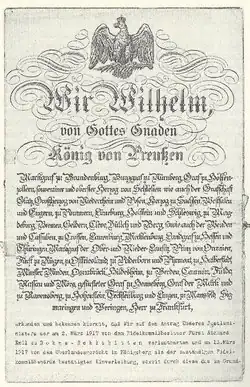 Wir Wilhelm,
von Gottes Gnaden
König von Preußen
Markgraf zu Brandenburg, Burggraf zu Nürnberg, Graf zu Hohen-
zollern, souveräner und oberster Herzog von Schlesien wie auch der Grafschaft
Glatz, Großherzog vom Niederrhein und Posen, Herzog zu Sachsen, Westfalen
und Engern, zu Pommern, Lüneburg, Holstein und Schleswig, zu Mag-
deburg, Bremen, Geldern, Cleve, Jülich und Berg, sowie auch der Wenden
und Kassuben, zu Crossen, Lauenburg, Mecklenburg, Landgraf zu Hessen und
Thüringen, Markgraf der Ober- und Nieder-Lausitz, Prinz von Oranien,
Fürst zu Rügen, zu Ostfriesland, zu Paderborn und Pyrmont, zu Halberstadt,
Münster, Minden, Osnabrück, Hildesheim, zu Verden, Cammin, Fulda,
Nassau und Mörs, gefürsteter Graf zu Henneberg, Graf der Mark und
zu Ravensberg, zu Hohenstein, Tecklenburg und Lingen, zu Mansfeld, Sig-
maringen und Veringen, Herr zu Frankfurt,
urkunden und bekennen hiermit, daß Wir auf den Antrag Unseres Justizmi-
nisters der am 2. März 1917 von dem Fideikommißbesitzer Fürst Richard
zu
1917 von dem Oberlandesgericht in Königsberg als der zuständigen Fidei-
kommißbehörde bestätigten